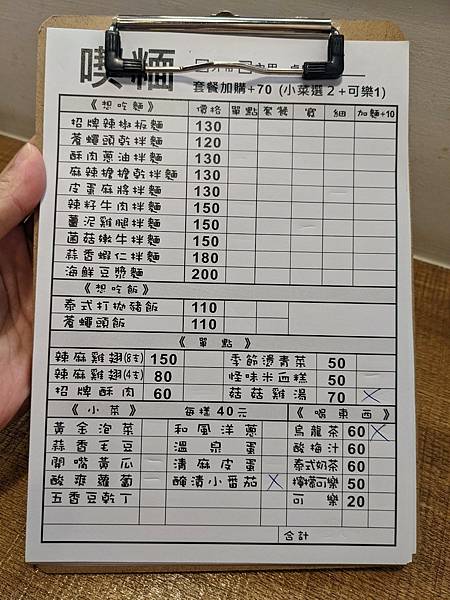 噗麵 □外帶□內用 桌
套餐加購+70 (小菜選2+可樂1)
《想吃麵》 價格 單點 套餐 寬 細 加麵+10
招牌辣椒板麵 130
蒼蠅頭乾拌麵 120
酥肉蔥油拌麵 130
麻辣擔擔乾拌麵 130
皮蛋麻將拌麵 130
辣籽牛肉拌麵 150
薑泥雞腿拌麵 150
菌菇嫩牛拌麵 150
蒜香蝦仁拌麵 180
海鮮豆漿麵 200
《想吃飯》
泰式打拋豬飯 110
蒼蠅頭飯 110
《單點》
辣麻雞翅(8支) 150 季節燙青菜 50
辣麻雞翅(4支) 80 怪味米血糕 50
招牌酥肉 60 菇菇雞湯 70
《小菜》 每樣40元 《喝東西》
黃金泡菜 和風洋蔥 烏龍茶 60
蒜香毛豆 溫泉蛋 酸梅汁 60
開嘴黃瓜 清麻皮蛋 泰式奶茶 60
酸爽蘿蔔 醃漬小番茄 檸檬可樂 50
五香豆乾丁 可樂 20
合計